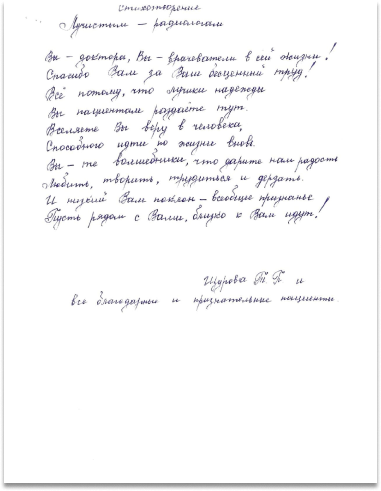 Стихотворение
Лучистым — радиологам
Вы — доктора, Вы — врачеватели в сей жизни!
Спасибо Вам за Ваш бесценный труд!
Всё потому, что лучики надежды
Вы пациентам раздаёте тут.
Вселяете Вы веру в человека,
Способного идти по жизни вновь.
Вы — те волшебники, что дарите нам радость
Любить, творить, трудиться и дерзать.
И низкий Вам поклон — всеобще признанье
Пусть рядом с Вами, близко к Вам идут!
Щурова Т. П и
все благодарные и признательные пациенты.